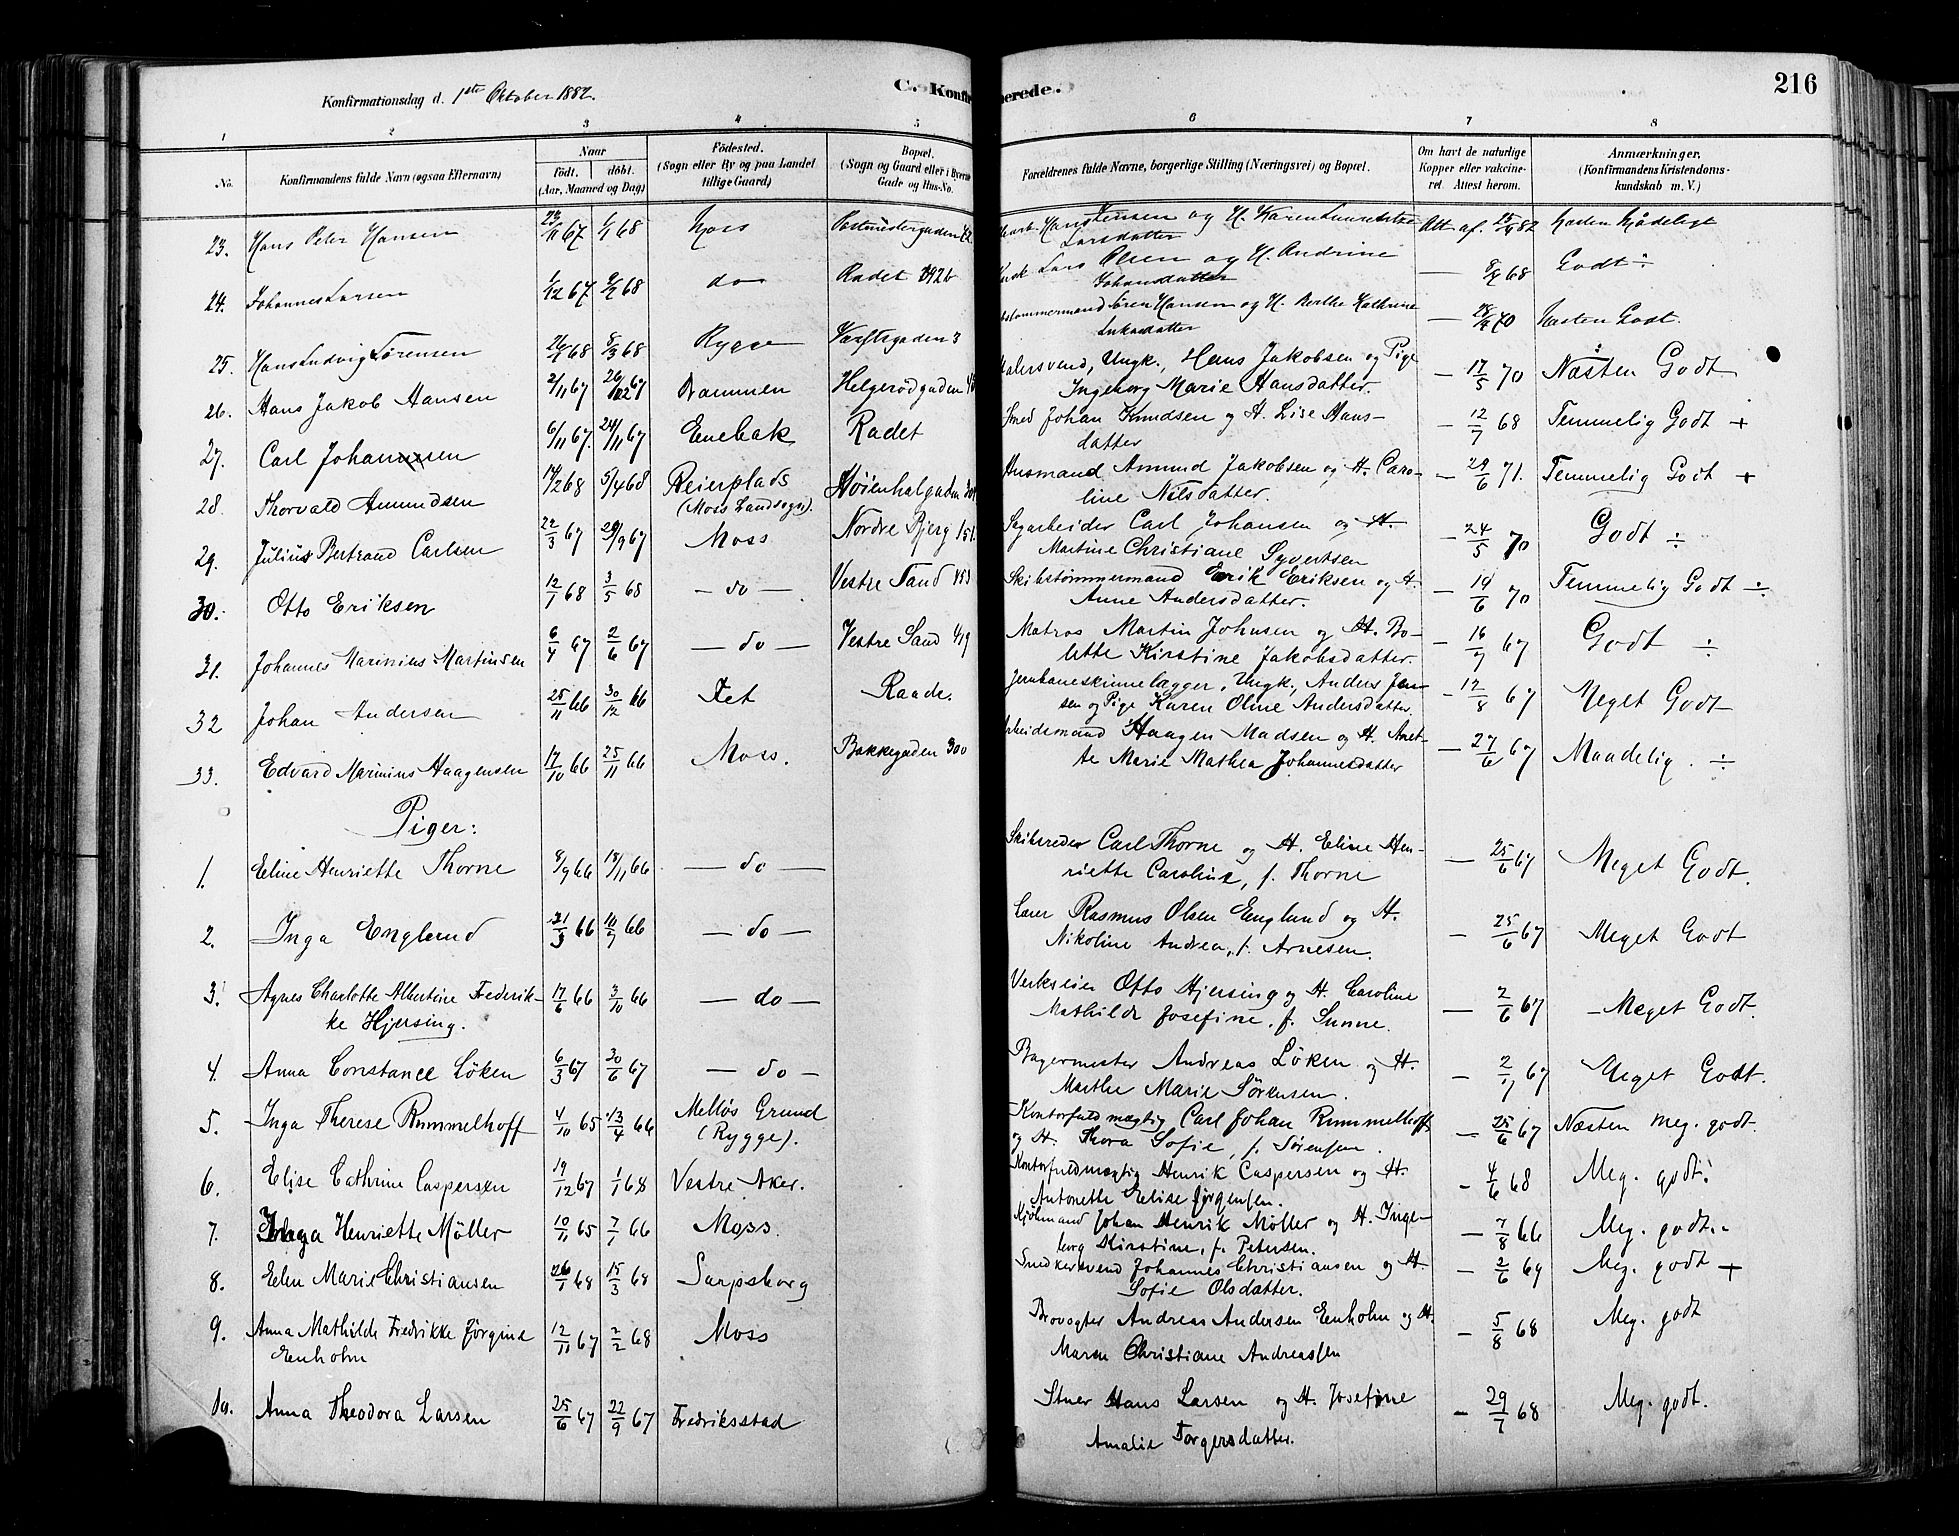 Konfirmationsdag d. 1ste Oktober 1882.
C. Konfirmerede.
216
1 2 3 4 5 6 7 8
No.
Konfirmandens fulde Navn (ogsaa Efternavn)
Naar
födt. döbt.
(Aar, Maaned og Dag)
Födested.
(Sogn eller By og paa Landet
tillige Gaard)
Bopæl.
(Sogn og Gaard eller i Byerne
Gade og Hus-No.
Forældrenes fulde Navne, borgerlige Stilling (Næringsvei) og Bopæl.
Om havt de naturlige
Kopper eller vakcine-
ret. Attest herom.
Anmærkninger.
(Konfirmandens Kristendoms-
kundskab m. V.)
23. Hans Peter Hansen 23/11 67 1/1 68 Moss Postmestergaden Hans Jensen og H. Karen Laurentze
Larsdatter Att. af 82
24. Johannes Larsen 1/12 67 9/2 68 do Radet Lars Olsen og H. Andrine
Johansdatter — 8/8 68 Godt ÷
25. Hans Ludvig Sörensen 26/1 68 8/3 68 Rygge 3 Sören Hansen og H. Berthe Kathrine
Lukasdatter — 70 Næsten Godt.
26. Hans Jakob Hansen 2/11 67 26/12 67 Drammen Helgerødgaden Malersvend, Ungk., Hans Jakobsen og Pige
Ingeborg Marie Hansdatter. — 17/5 70 Næsten Godt
27. Carl Johannesen 6/11 67. 24/11 67 Enebak Radet Smed Johan Knudsen og H. Lise Hans-
datter — 12/7 68 Temmelig Godt +
28. Thorvald Amundsen 14/2 68 5/4 68 Reierplads
(Moss Landsogn). Høienhalgaden Husmand Amund Jakobsen og H. Caro-
line Nilsdatter. — 29/6 71. Temmelig Godt +
29. Julius Bertrand Carlsen 22/3 67 29/9 67 Moss Nordre Bjerg 151. Sagarbeider Carl Johansen og H.
Martine Christiane Syvertsen — 24/5 70 Godt ÷
30. Otto Eriksen 12/1 68 3/5 68 — do — Vestre Sand 453 Skibstømmermand Erik Eriksen og H.
Anne Andersdatter. — 14/6 70 Temmelig Godt ÷
31. Johannes Marinius Martinsen 6/4 67 2/6 67 — do — Vestre Sand 419 Matros Martin Johnsen og H. Bo-
lette Kirstine Jakobsdatter. — 16/7 67 Godt ÷
32 Johan Andersen 25/11 66 30/12 66 Fet Raade. Jernbaneskinnelægger, Ungk., Anders Jen-
sen og Pige Karen Oline Andersdatter. — 12/8 67 Meget Godt
33. Edvard Marinius Haagensen 17/10 66 25/11 66 Moss. Bakkegaden 300 Arbeidsmand Haagen Madsen og H. Anet-
te Marie Mathea Johannesdatter — 27/6 67 Maadelig. ÷
Piger:
1. Eline Henriette Thorne 8/9 66 18/11 66 — do — Skibsreder Carl Thorne og H. Eline Hen-
riette Caroline, f. Thorne — 25/6 67 Meget Godt.
2. Inga Englund 31/3 66 10/7 66 — do — Lærer Rasmus Olsen Englund og H.
Nikoline Andrea, f. Arnesen. — 25/6 67 Meget Godt
3. Agnes Charlotte Albertine Frederik-
ke Hjersing. 17/6 66 3/10 66 — do — Verkseier Otto Hjersing og H. Caroline
Mathilde Josefine, f. Sunne. — 2/6 67 — Meget Godt.
4. Anna Constance Löken 6/3 67 30/6 67 — do — Bagermester Andreas Löken og H.
Marthe Marie Sørensen. — 67 Meget Godt.
5. Inga Therese Rummelhoff 4/10 65 13/4 66 Mellös Grund
(Rygge). Kontorfuldmægtig Carl Johan Rummelhoff
og H. Thora Sofie, f. Sørensen. — 25/6 67 Næsten meg. godt.
6. Elise Cathrine Caspersen 19/12 67 1/1 68 Vestre Aker. Kontorfuldmægtig Henrik Caspersen og H.
Antonette Elise Jørgensen. — 4/6 68 Meg. godt.
7. Inga Henriette Möller 10/11 65 7/1 66 Moss. Kjøbmand Johan Henrik Möller og H. Inge-
borg Kirstine, f. Petersen. — 7/8 66 Meg. godt.
8. Elen Marie Christiansen 26/1 68 15/3 68 Sarpsborg Snedkersvend Johannes Christiansen og H.
Sofie Olsdatter. — 2/6 69 Meg. godt +
9. Anna Mathilde Fredrikke Jörgine
Enholm 12/11 67 2/2 68 Moss Brovogter Andreas Andersen Enholm og H.
Maren Christiane Andreassen — 5/8 68 Meg. godt
10. Anna Theodora Larsen 25/6 67 22/9 67 Fredriksstad Stuer Hans Larsen og H. Josefine
Amalie Torgersdatter. — 29/7 68 Meg. godt.